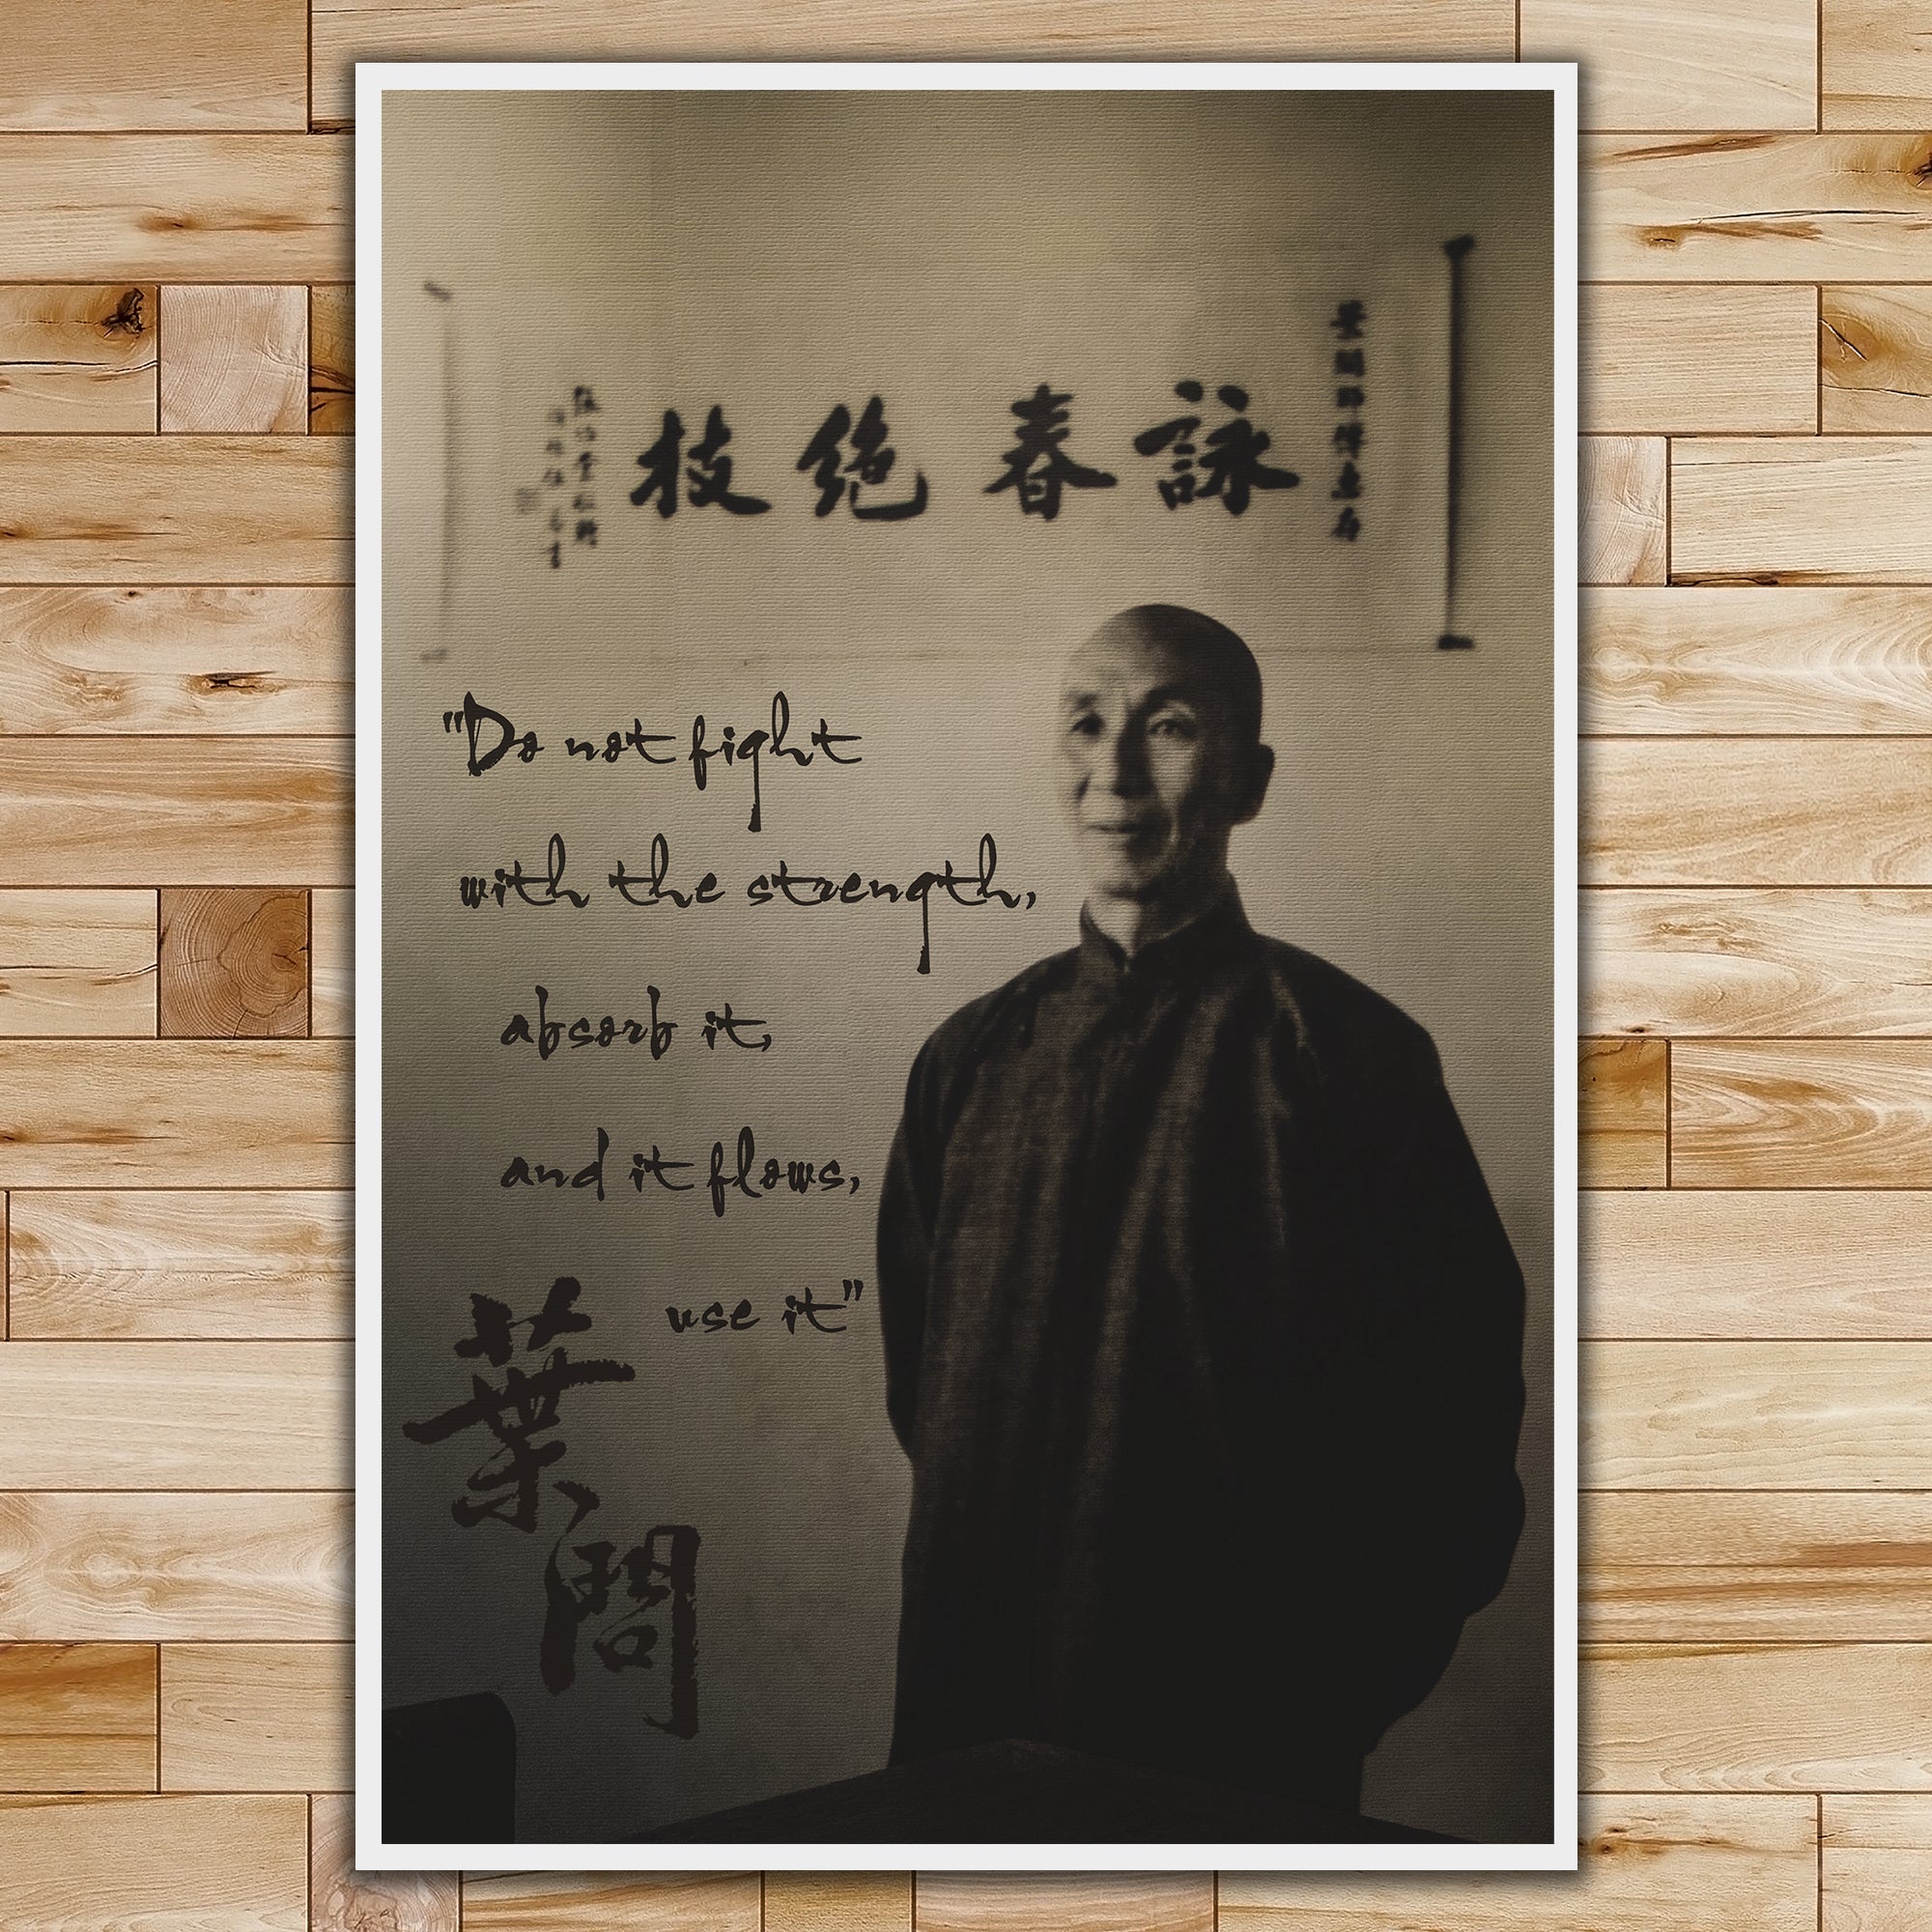 詠春絶技
"Do not fight
with the strength,
absorb it,
and it flows,
use it"
葉問